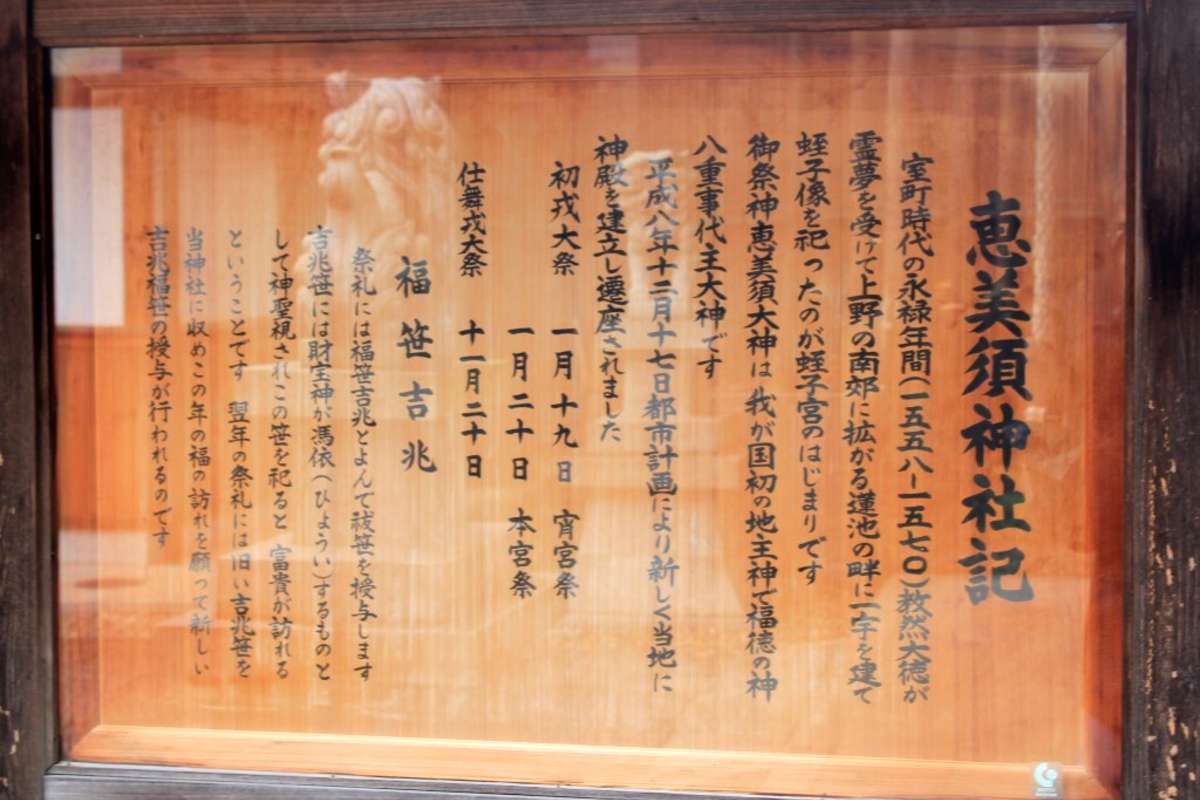 恵美須神社記
室町時代の永禄年間(一五五八ー一五七〇)教然大徳が
霊夢を受けて上野の南郊に拡がる蓮池の畔に一宇を建て
蛭子像を祀ったのが蛭子宮のはじまりです
御祭神恵美須大神は 我が国初の地主神で福徳の神
八重事代主大神です
平成八年十二月十七日都市計画により新しく当地に
神殿を建立し遷座されました
初戎大祭 一月十九日 宵宮祭
一月二十日 本宮祭
仕舞戎大祭 十一月二十日
福笹吉兆
祭礼には福笹吉兆とよんで祓笹を授与します
吉兆笹には財宝神が憑依(ひょうい)するものと
して神聖視されこの笹を祀ると 富貴が訪れる
ということです 翌年の祭礼には旧い吉兆笹を
当神社に収めこの年の福の訪れを願って新しい
吉兆福笹の授与が行われるのです